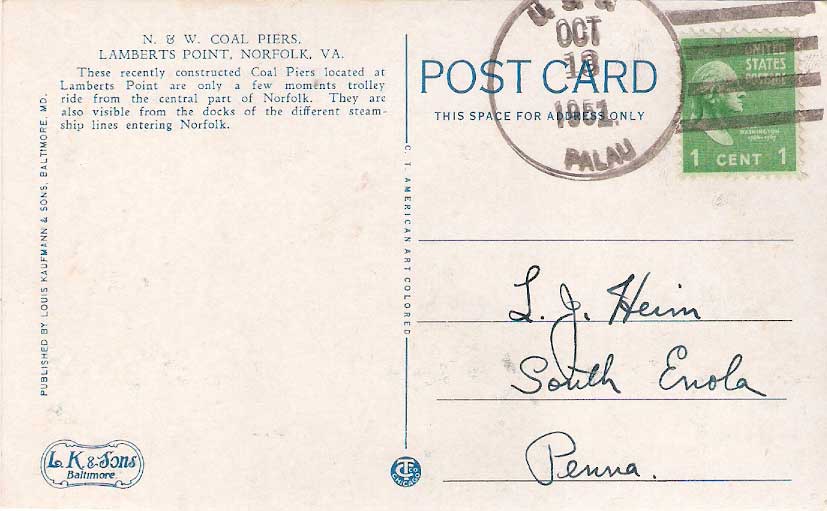 N. & W. COAL PIERS,
LAMBERTS POINT, NORFOLK, VA.
These recently constructed Coal Piers located at
Lamberts Point are only a few moments trolley
ride from the central part of Norfolk. They are
also visible from the docks of the different steam-
ship lines entering Norfolk.
PUBLISHED BY LOUIS KAUFMANN & SONS, BALTIMORE, MD.
L. K. & Sons
Baltimore
C. T. AMERICAN ART COLORED
CHICAGO
POST CARD
THIS SPACE FOR ADDRESS ONLY
OCT
1951
PALAU
UNITED
STATES
POSTAGE
WASHINGTON
1 CENT 1
L. J. Heim
South Enola
Penna.